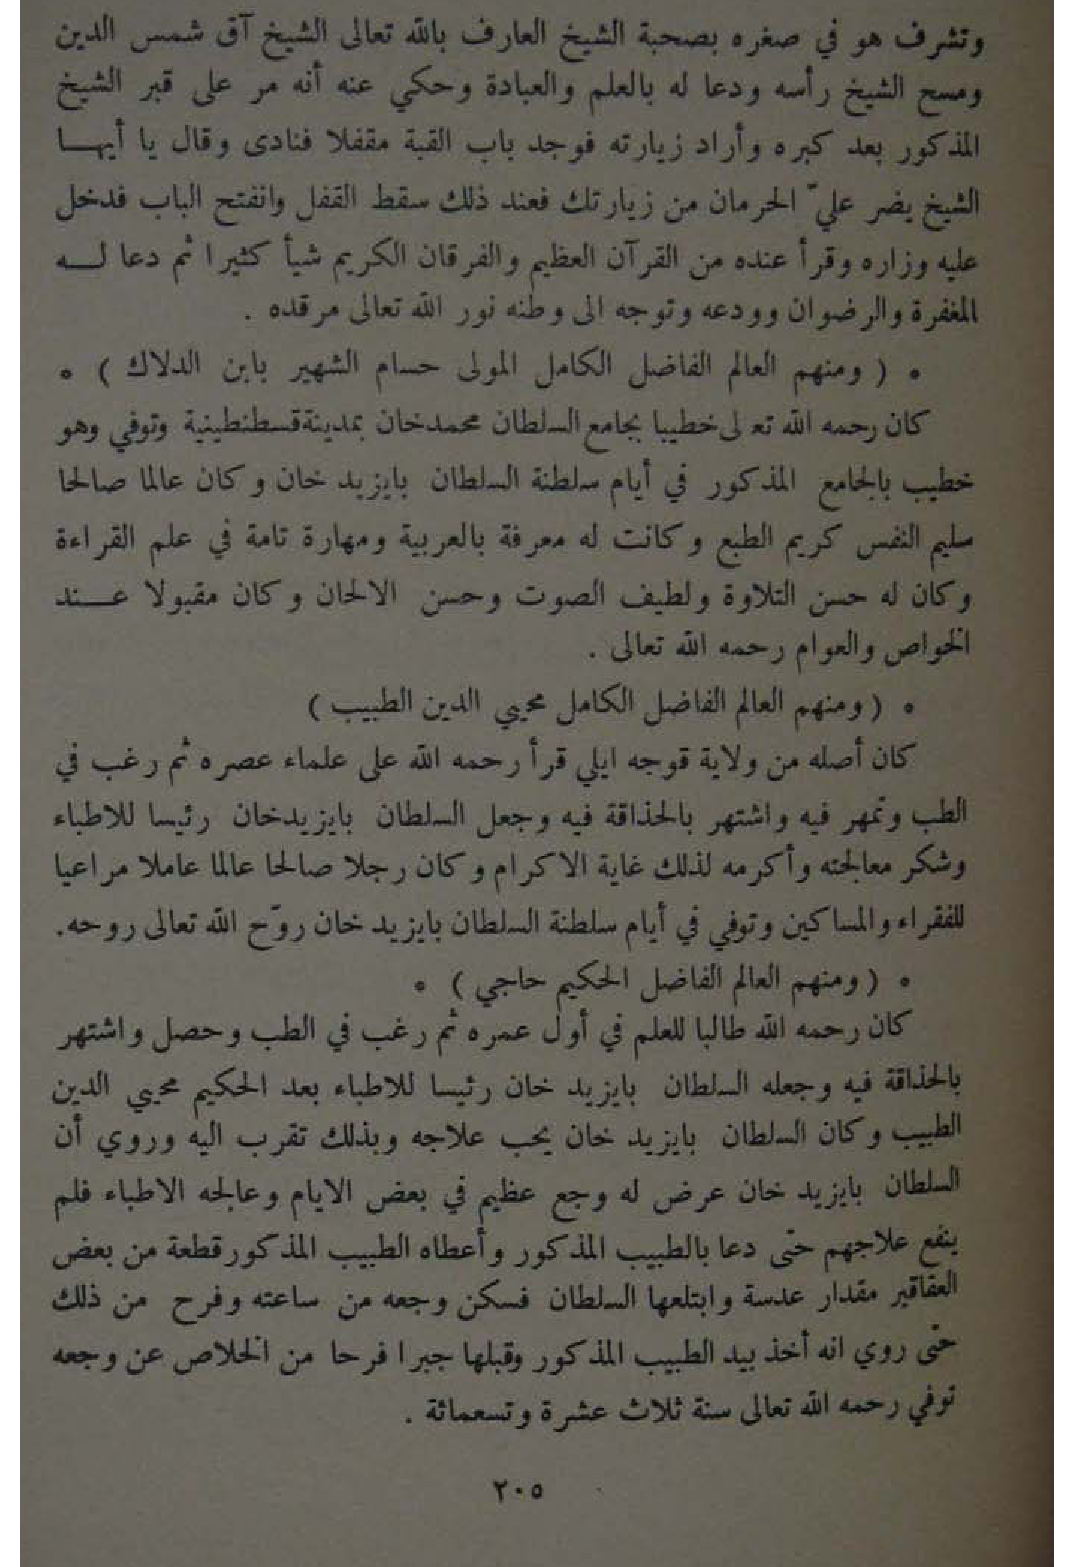 وتشرف هو في صغره بصحبة الشيخ العارف بالله تعالى الشيخ آق شمس الدين
ومسح الشيخ رأسه ودعا له بالعلم والعبادة وحكي عنه أنه مر على قبر الشيخ
المذكور بعد كبره وأراد زيارته فوجد باب القبة مقفلا فنادى وقال يا أيهـا
الشيخ يضر عليّ الحرمان من زيارتك فعند ذلك سقط القفل وانفتح الباب فدخل
عليه وزاره وقرأ عنده من القرآن العظيم والفرقان الكريم شيأ كثيرا ثم دعا لـه
المغفرة والرضوان وودعه وتوجه الى وطنه نور الله تعالى مرقده .
• ( ومنهم العالم الفاضل الكامل المولى حسام الشهير بابن الدلاك ) •
كان رحمه الله تعالى خطيبا بجامع السلطان محمدخان بمدينة قسطنطينية وتوفي وهو
خطيب بالجامع المذكور في أيام سلطنة السلطان بايزيد خان وكان عالما صالحا
سليم النفس كريم الطبع وكانت له معرفة بالعربية ومهارة تامة في علم القراءة
وكان له حسن التلاوة ولطيف الصوت وحسن الالحان وكان مقبولا عـند
الخواص والعوام رحمه الله تعالى .
• ( ومنهم العالم الفاضل الكامل محيي الدين الطبيب )
كان أصله من ولاية قوجه ايلي قرأ رحمه الله على علماء عصره ثم رغب في
الطب وتمهر فيه واشتهر بالحذاقة فيه وجعل السلطان بايزيدخان رئيسا للاطباء
وشكر معالجته وأكرمه لذلك غاية الاكرام وكان رجلا صالحا عالما عاملا مراعيا
للفقراء والمساكين وتوفي في أيام سلطنة السلطان بايزيد خان روّح الله تعالى روحه.
• ( ومنهم العالم الفاضل الحكيم حاجي ) •
كان رحمه الله طالبا للعلم في أول عمره ثم رغب في الطب وحصل واشتهر
بالحذاقة فيه وجعله السلطان بايزيد خان رئيسا للاطباء بعد الحكيم محيي الدين
الطبيب وكان السلطان بايزيد خان يحب علاجه وبذلك تقرب اليه وروي أن
السلطان بايزيد خان عرض له وجع عظيم في بعض الايام وعالجه الاطباء فلم
ينفع علاجهم حتى دعا بالطبيب المذكور وأعطاه الطبيب المذكور قطعة من بعض
العقاقير مقدار عدسة وابتلعها السلطان فسكن وجعه من ساعته وفرح من ذلك
حتى روي انه أخذ بيد الطبيب المذكور وقبلها جبرا فرحا من الخلاص عن وجعه
توفي رحمه الله تعالى سنة ثلاث عشرة وتسعمائة .
٢٠٥